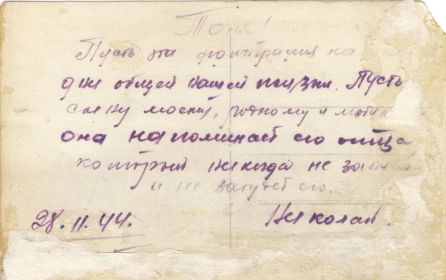 Тоня!
Пусть эта фотография на
дни общей нашей жизни. Пусть
сыну моему, родному и люби
она напоминает его отца
который никогда не забывал
и не забудет его.
28.11.44. Николай.